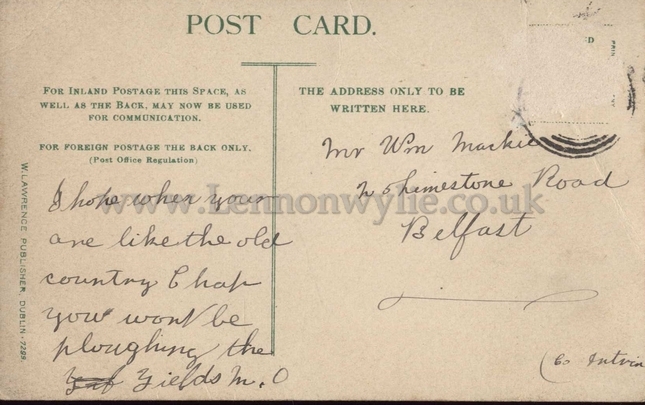 POST CARD.
FOR INLAND POSTAGE THIS SPACE, AS
WELL AS THE BACK, MAY NOW BE USED
FOR COMMUNICATION.
FOR FOREIGN POSTAGE THE BACK ONLY.
(Post Office Regulation)
THE ADDRESS ONLY TO BE
WRITTEN HERE.
W. LAWRENCE, PUBLISHER, DUBLIN. 7299.
I hope when your
are like the old
country Chap
you wont be
ploughing the
Fields M. C
Mr Wm Mackie
Limestone Road
Belfast
(Co Antrim
www.Lennonwylie.co.uk